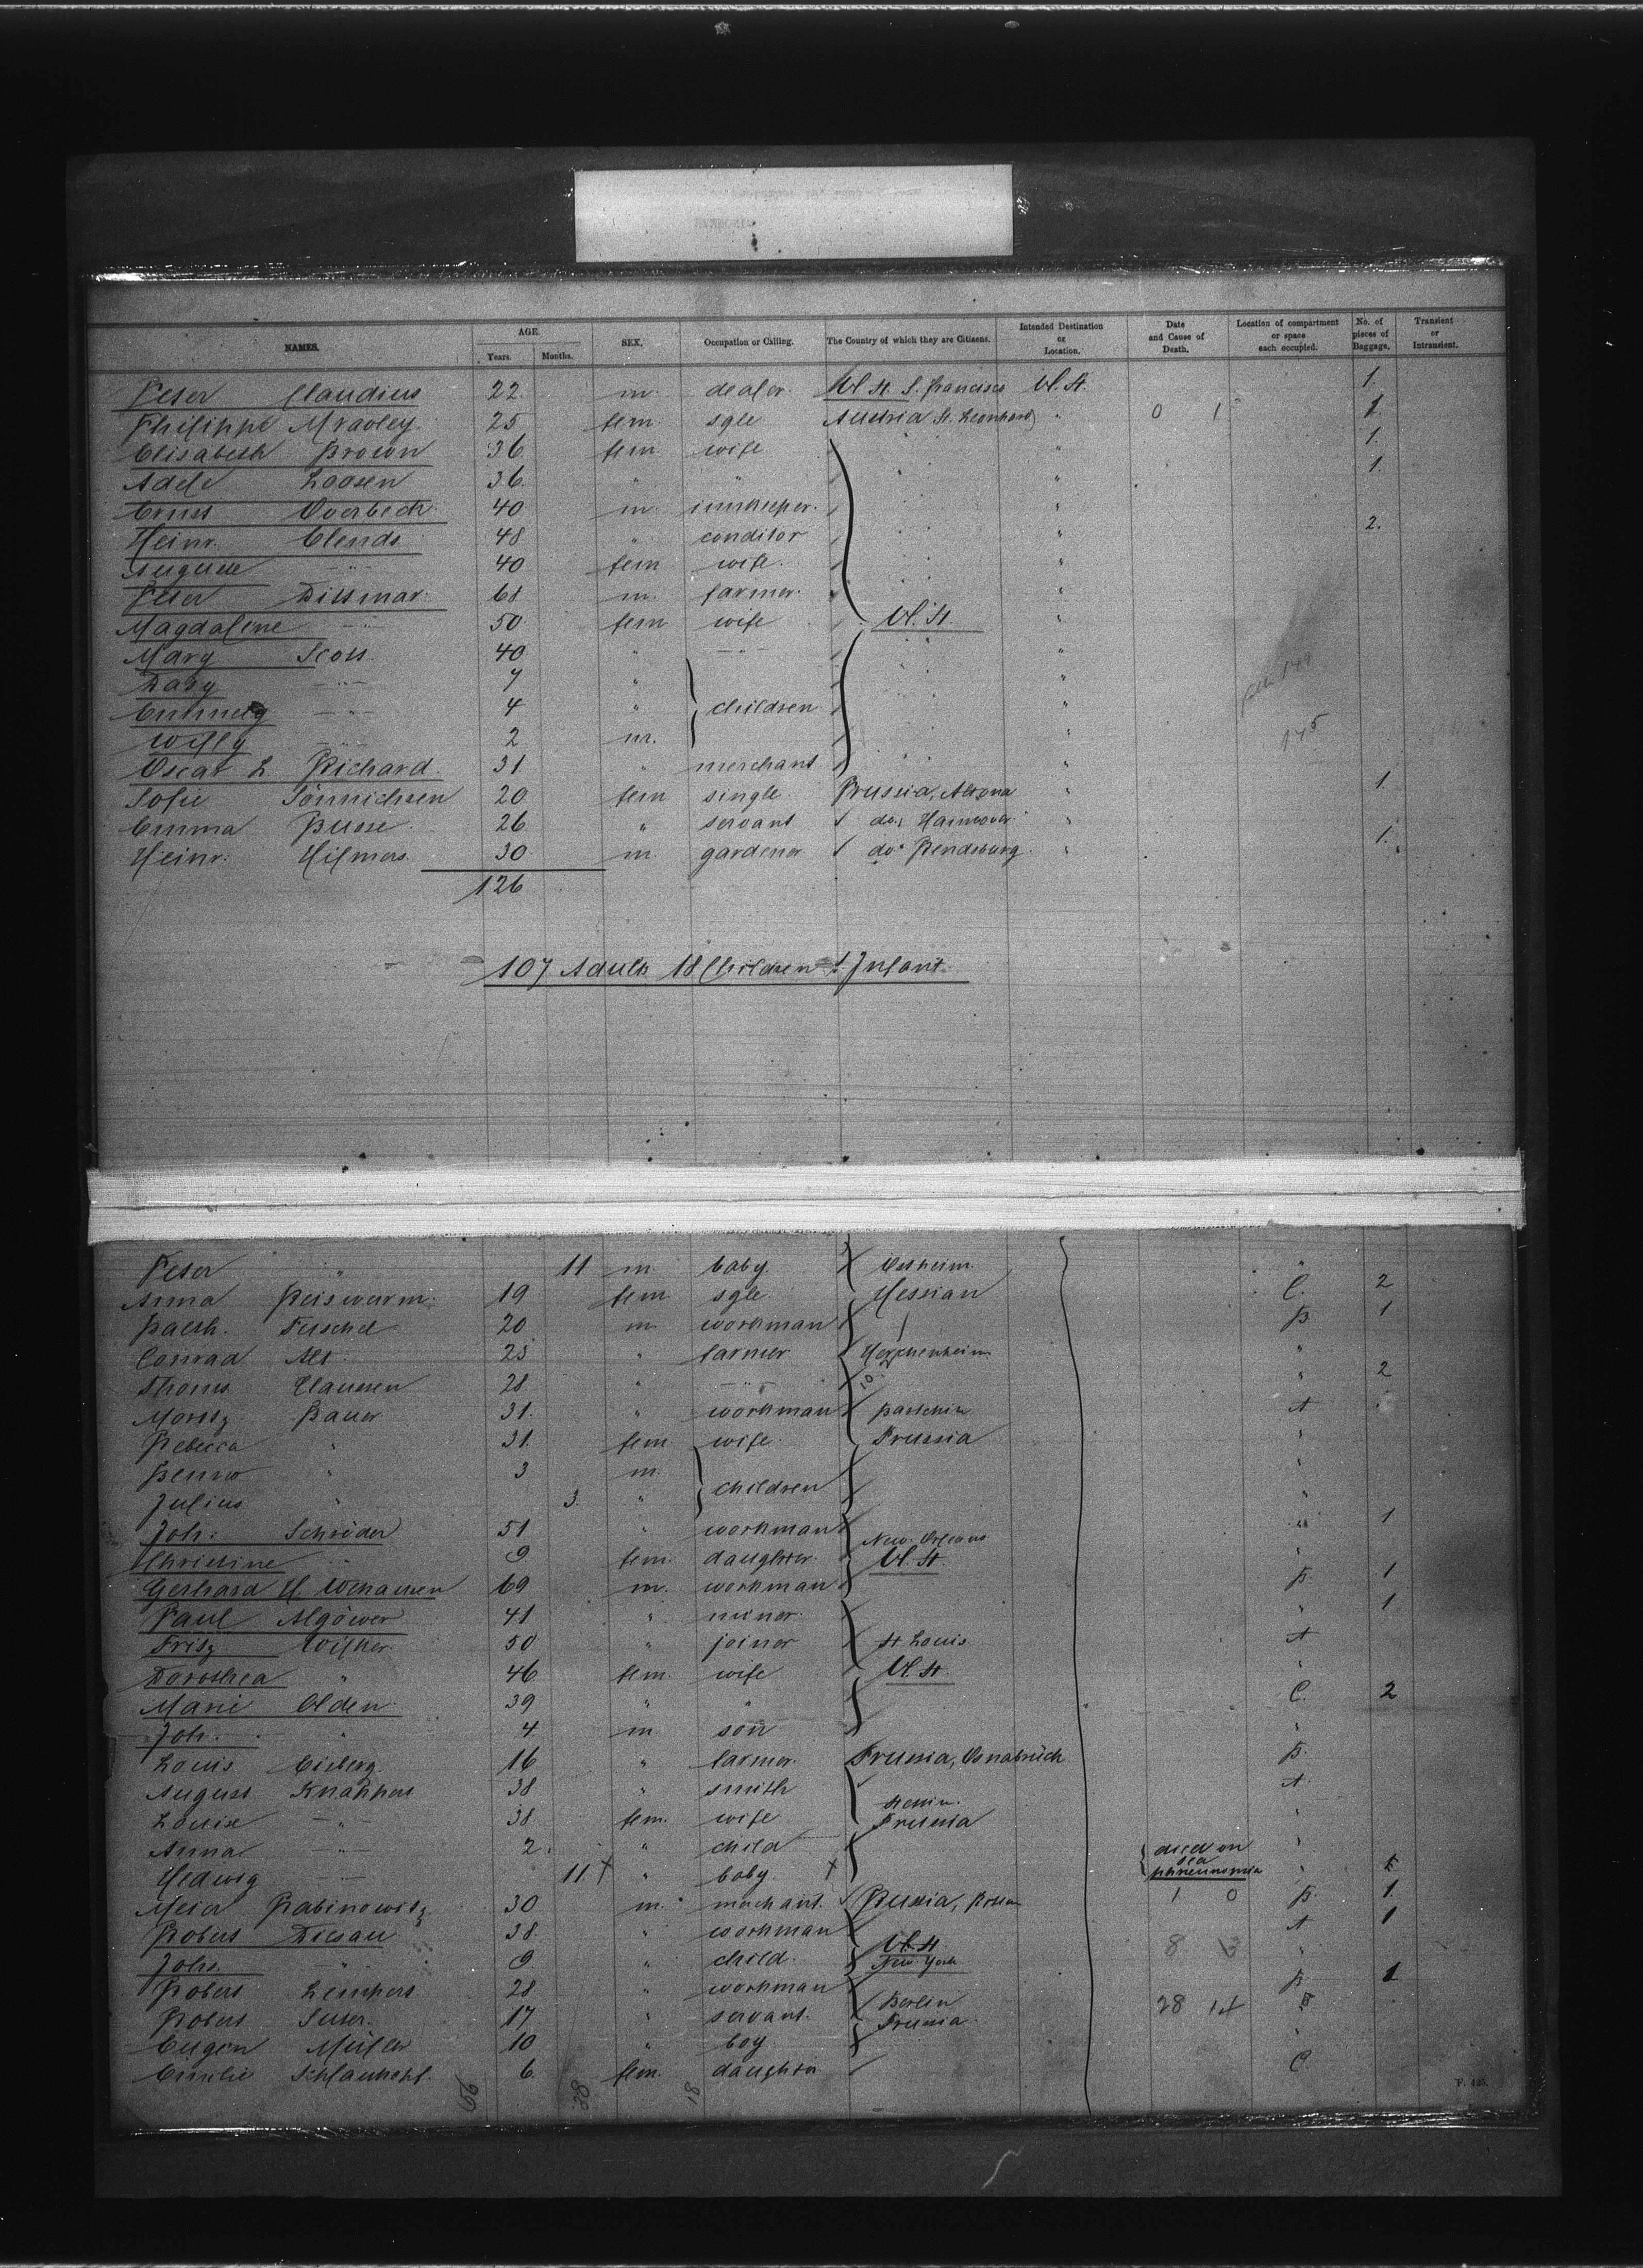 NAMES. AGE. SEX. Occupation or Calling. The Country of which they are Citizens. Intended Destination or Location. Date and Cause of Death. Location of compartment or space each occupied. No. of pieces of Baggage. Transient or Intransient.
Years. Months.
Peter Claudius 22 m. dealer U. St. S. Francisco U. St. 1.
Philippe 25 fem sgle Austria St. Leonhard " 0 1 1.
Elisabeth Brown 36 fem wife " 1.
Adele Loosen 36. " " " 1.
Ernst Overbeck 40 m innkeeper "
Heinr. 48 " conditor " 2.
Auguste -"- 40 fem wife "
Peter Dittmar 61 m. farmer "
Magdalene -"- 50 fem wife U. St. "
Mary Scott 40 " -"- "
Dasy -"- 7 " "
-"- 4 " children "
Willy 2 m. " 145
Oscar L Richard 31 " merchant "
Sofie Sönnichsen 20 fem single Prussia, Altona " 1.
Emma Busse 26 " servant do. Hannover "
Heinr. Hilmers 30 m. gardener do. Rendsburg " 1.
126
107 Adults 18 Children 1 Infant
Peter " 11 m baby "
Anna Reiswurm 19 fem sgle Hessian C. 2
Balth. 20 m workman B 1
Conrad Alt 25 " farmer "
Thoms Claussen 28 " -"- " 2
Moritz Bauer 31. " workman A
Rebecca " 31. fem. wife Prussia "
Benno " 3 m. "
Julius " 3. " children "
Joh: Schröder 51 " workman New Orleans " 1
Christine " 9 fem. daughter U. St. "
Gerhard H. 69 m. workman B. 1
Paul Algöwer 41 " miner " 1
Fritz 50 " joiner St Louis A
Dorothea " 46 fem. wife U. St. "
Marie Olden 39 " " C. 2
Joh. " 4 m son "
Louis 16 " farmer Prussia, Osnabrück B.
August Knappert 38 " smith A.
Louise -"- 38 fem. wife Stettin Prussia "
Anna -"- 2. " child "
Hedwig -"- 11. + " baby + died on sea phneunomia "
Meier Rabinowitz 30 m. merchant Russia, 1 0 B. 1.
Robert Diesau 38. " workman U. St A 1
Johs. -"- 9. " child New York 8 3 "
Robert Lempert 28 " workman B 1
Robert Suter 17 " servant Berlin Prussia 28 14
Eugen Müller 10 " boy "
Emilie 6. fem. daughter C.
66 38 18 F. 125.